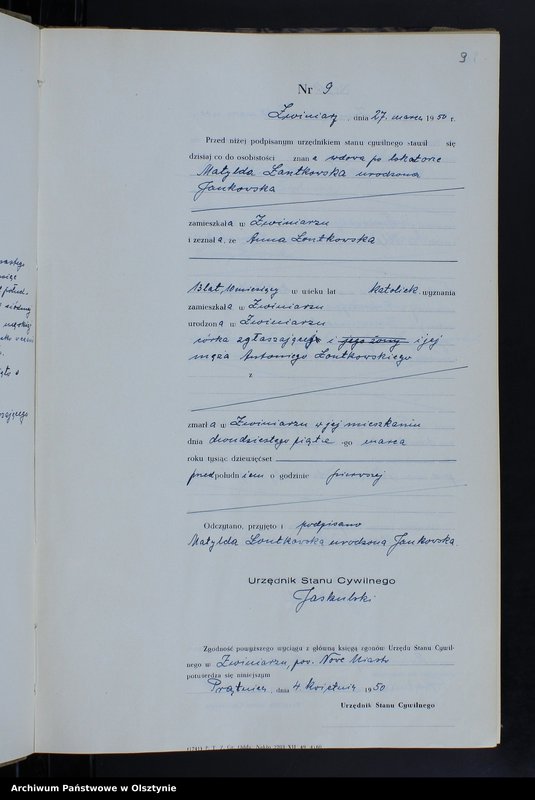 9
Nr 9
Zwiniarz, dnia 27. marca 1950 r.
Przed niżej podpisanym urzędnikiem stanu cywilnego stawił się
dzisiaj co do osobistości znana wdowa po
Matylda Lontkowska urodzona
Jankowska
zamieszkała w Zwiniarzu
i zeznała, że Anna Lontkowska
13 lat, 10 miesięcy w wieku lat katolick wyznania
zamieszkała w Zwiniarzu
urodzona w Zwiniarzu
córka zgłaszającej i jego żony i jej
męża Antoniego Lontkowskiego
z
zmarła w Zwiniarzu w jej mieszkaniu
dnia dwudziestego piąte -go marca
roku tysiąc dziewięćset
przedpołudniem o godzinie pierwszej
Odczytano, przyjęto i podpisano
Matylda Lontkowska urodzona Jankowska.
Urzędnik Stanu Cywilnego
Jaskulski
Zgodność powyższego wyciągu z główną księgą zgonów Urzędu Stanu Cywil-
nego w Zwiniarzu, pow. Nowe Miasto
potwierdza się niniejszym
Prątnica, dnia 4. kwietnia 1950
Urzędnik Stanu Cywilnego
Archiwum Państwowe w Olsztynie